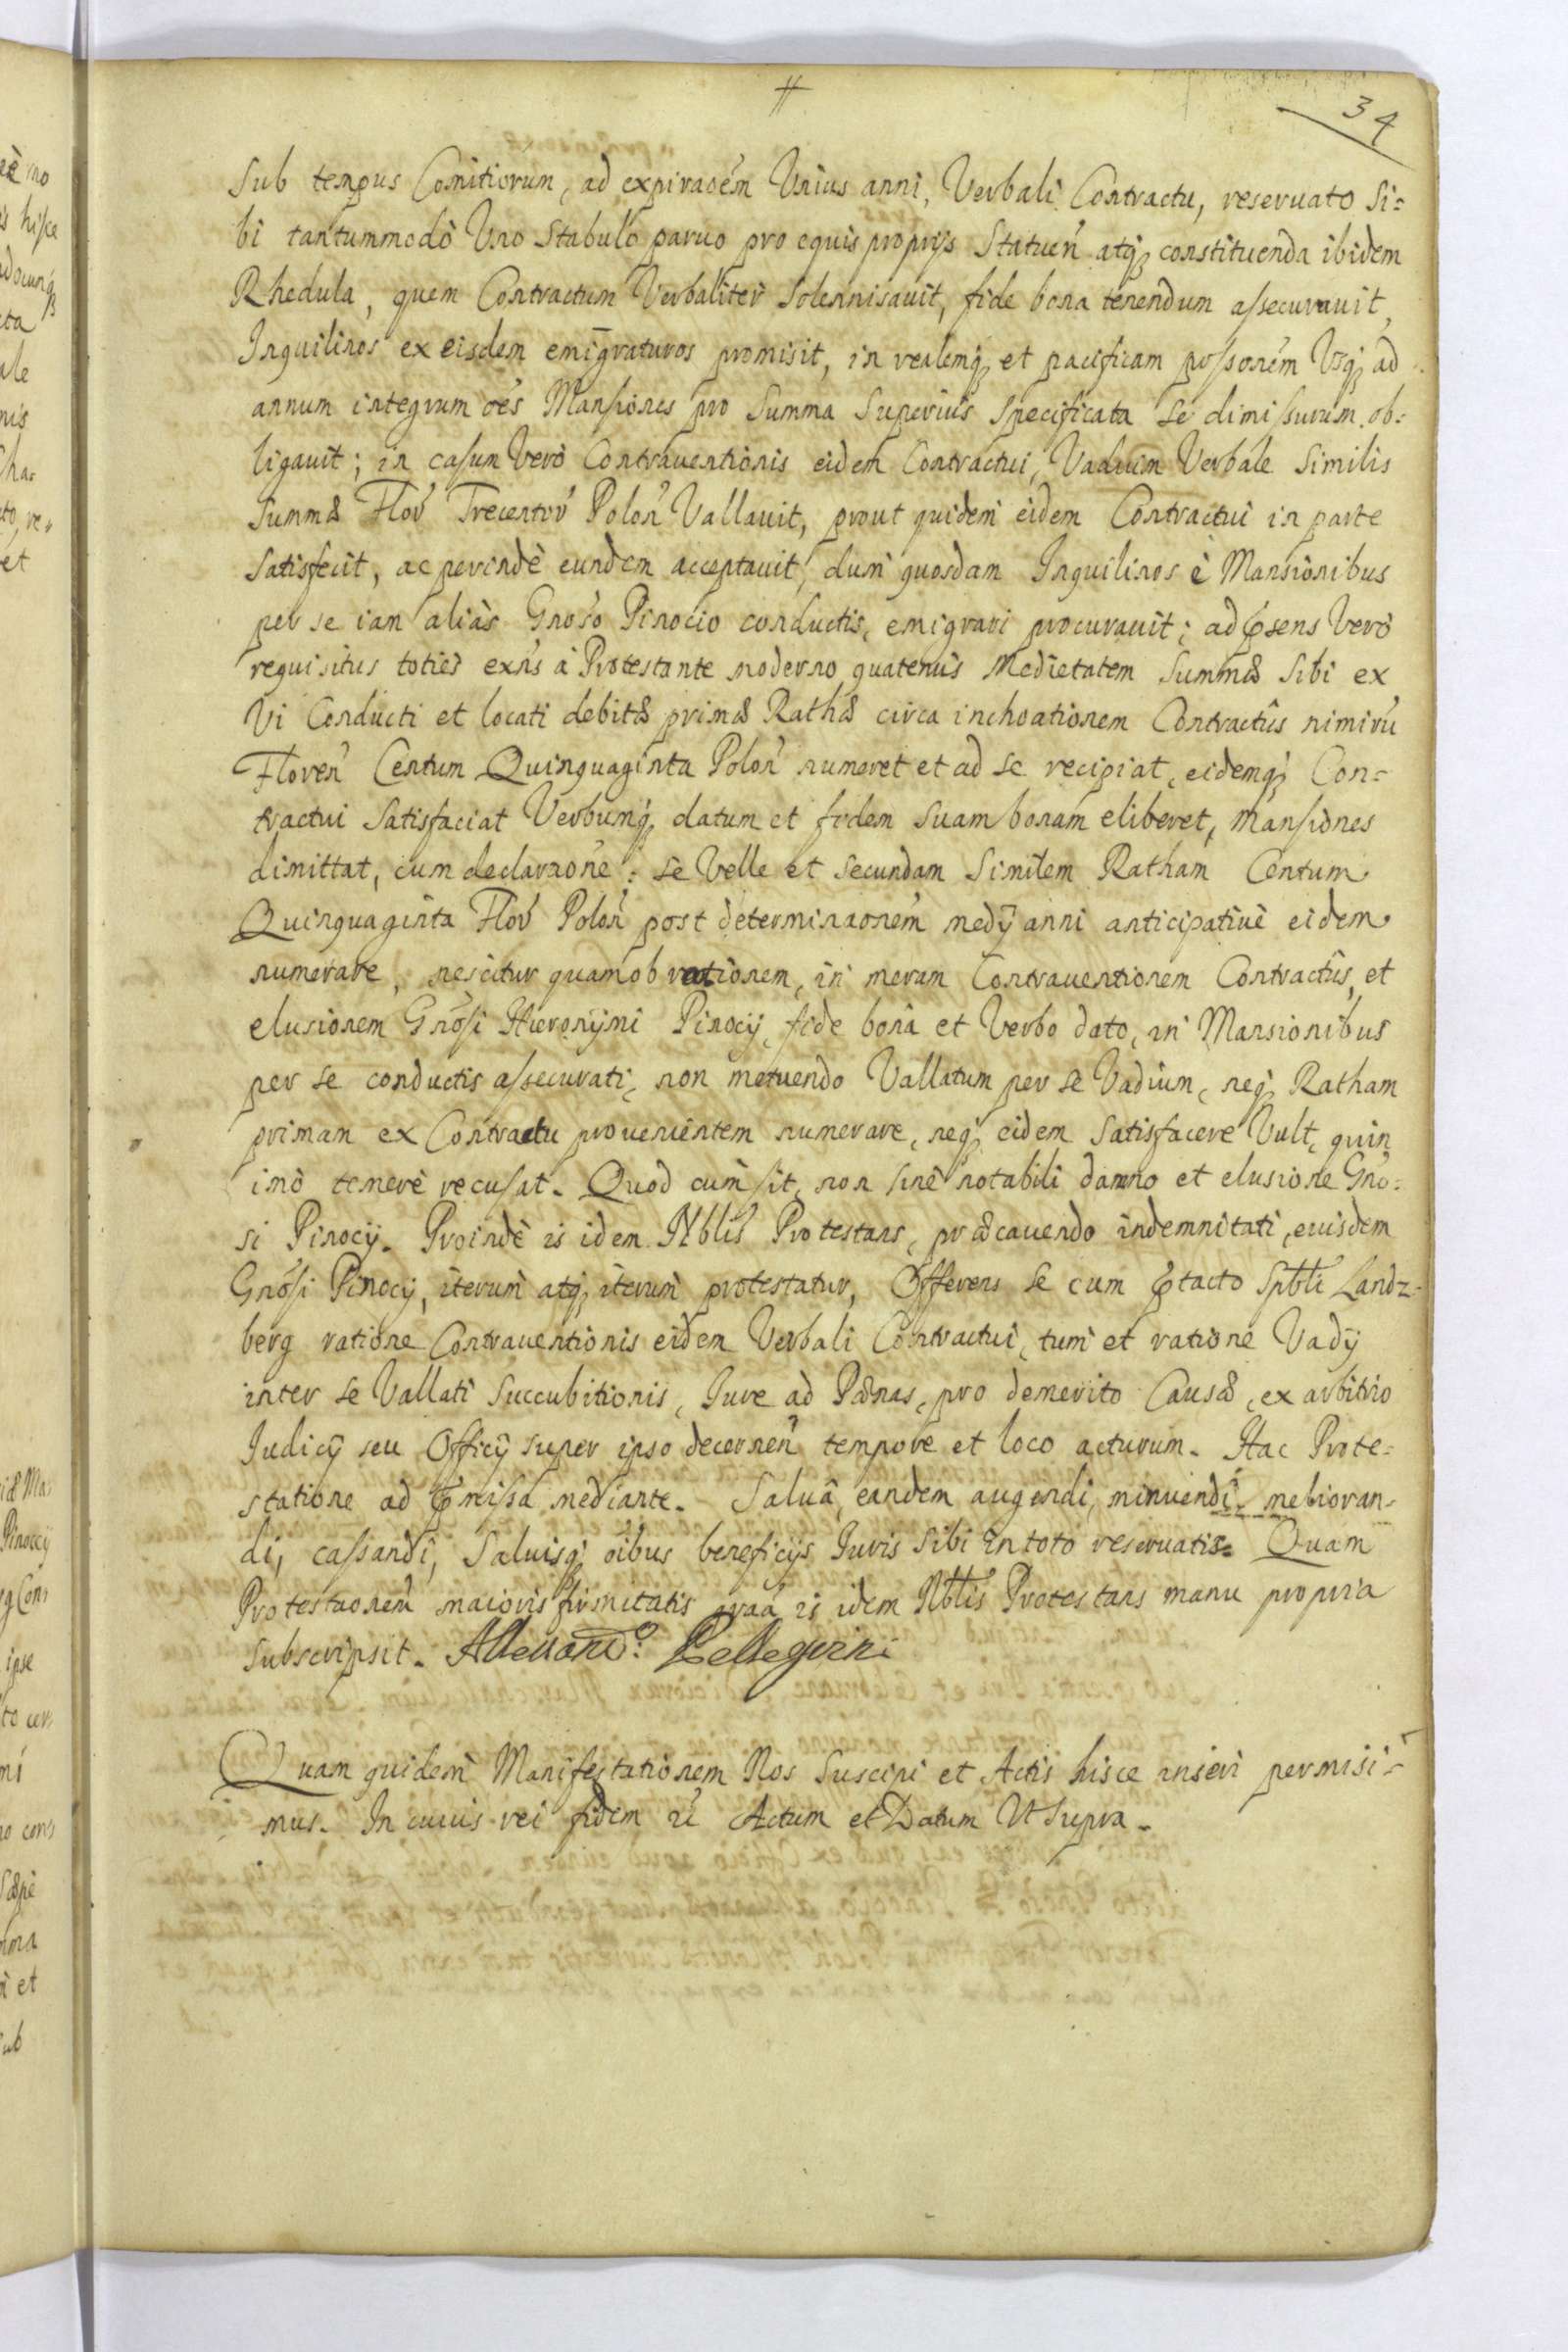 34
Sub tempus Comitiorum, ad expiraõem Unius anni, Verbali Contractu, reseruato Si=
bi tantummodò Uno Stabulo paruo pro equis proprijs Statueñ atq; constituenda ibidem
Rhedula, quem Contractum Verbaliter Solennisauit, fide bona tenendum assecurauit,
Inquilinos ex eisdem emigraturos promisit, in realemq; et pacificam possonẽm Usq; ad
annum integrum oẽs Mansiones pro Summa Superius Specificata se dimissurum ob=
ligauit; in casum Verò Contrauentionis eidem Contractui, Vadium Verbale Similis
Summæ Flor̃ Trecentor̃ Poloñ Vallauit, prout quidem eidem Contractui in parte
Satisfecit, ac perindè eundem acceptauit, dum quosdam Inquilinos è Mansionibus
per se iam aliàs Gnoso Pinocio conductis, emigrari procurauit; ad p̃sens Verò
requisitus toties exñs à Protestante moderno quatenus Medietatem Summæ Sibi ex
Vi Conducti et locati debitæ primæ Rathæ circa inchoationem Contractûs nimirũ
Floreñ Centum Quinquaginta Poloñ numeret et ad se recipiat, eidemq; Con=
tractui Satisfaciat Verbumq; datum et fidem suam bonam eliberet, mansiones
dimittat, cum declaraõne: se Velle et secundam Similem Ratham Centum
Quinquaginta Flor̃ Poloñ post determinaonẽm medij anni anticipatiuè eidem
numerare, nescitur quamob rationem, in meram Contrauentionem Contractûs, et
elusionem Gnõsi Hieronymi Pinocij, fide bonâ et Verbo dato, in Mansionibus
per se conductis assecurati, non metuendo Vallatum per se Vadium, neq; Ratham
primam ex Contractu prouenientem numerare, neq; eidem Satisfacere Vult, quin
imò temerè recusat. Quod cum sit, non sinè notabili damno et elusione Gno=
si Pinocij. Proindè is idem Nblis Protestans, præcauendo indemnitati, euisdem
Gnõsi Pinocij, iterum atq; iterum protestatur, Offerens Se cum p̃tacto Sptli Landz=
berg ratione Contrauentionis eidem Verbali Contractui, tum et ratione Vadij
inter se Vallati Succubitionis, Iure ad Pænas, pro demerito Causæ, ex arbitrio
Iudicij seu Officij super ipso decerneñ tempore et loco acturum. Hac Prote=
statione ad p̃missa mediante. Saluâ eandem augendi, minuendi, melioran=
di, cassandi, Saluisq; oĩbus beneficijs Iuris Sibi in toto reseruatis. Quam
Protestaonẽm maioris firmitatis graã is idem Nblis Protestans manu propria
subscripsit. Allessandº: Pellegrini
Quam quidem Manifestationem Nos Suscipi et Actis hisce inseri permisi=
mus. In cuius rei fidem &c Actum et Datum Ut supra.